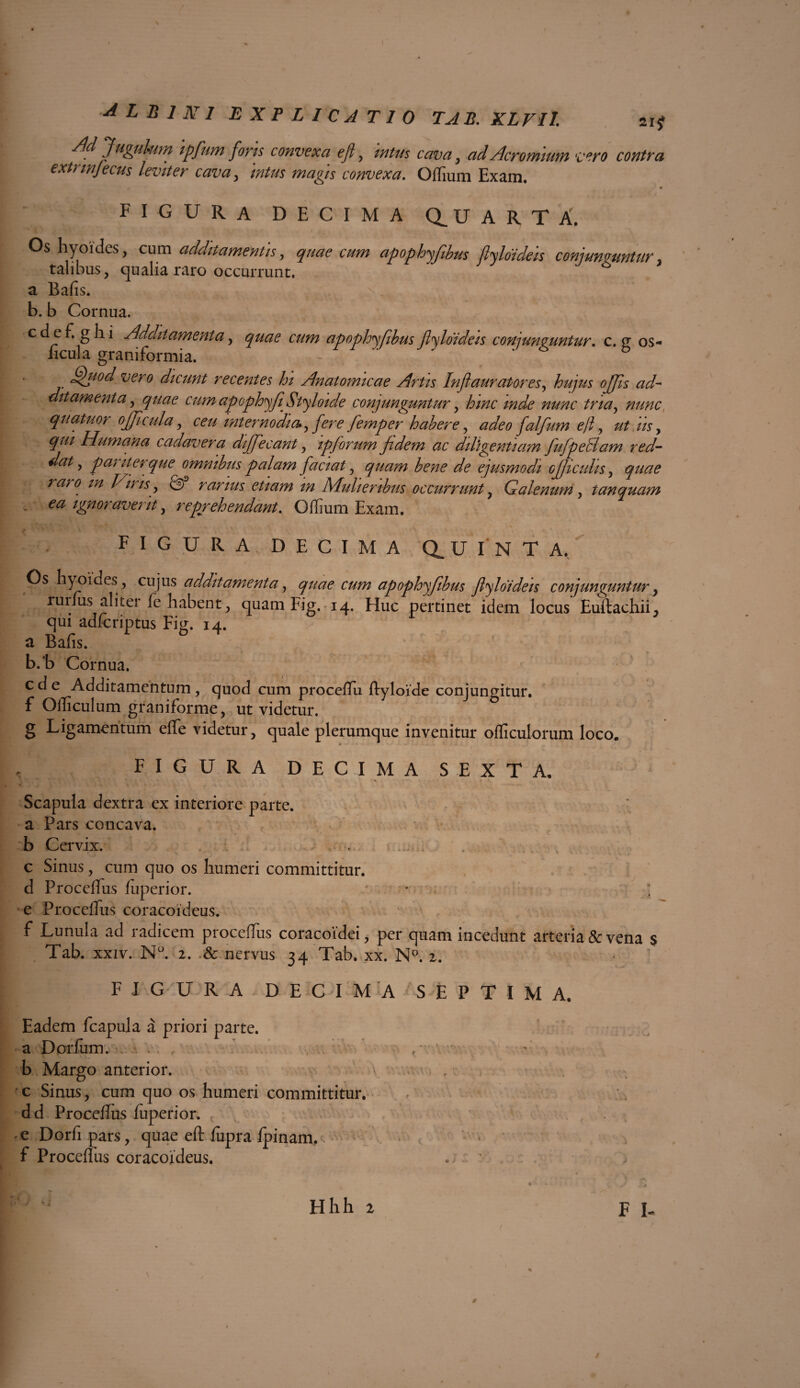 ALBINI EXPLICATIO TAB. XLVII. 215
Ad Jugulum ipſum foris convexa eſt, intus cava, ad Acromium vero contra
extrinſecus leviter cava, intus magis convexa. Oſſium Exam.
FIGURA DECIMA QUARTA.
Os hyoïdes, cum additamentis, quae cum apophyſibus ſtyloïdeis conjunguntur,
talibus, qualia raro occurrunt.
a Baſis.
b. b Cornua.
c d e f. g h i Additamenta, quae cum apophyſibus ſtyloïdeis conjunguntur. c. g os-
ſicula graniformia.
Quod vero dicunt recentes hi Anatomicae Artis Inſtauratores, hujus oſſis ad-
ditamenta, quae cum apophyſi Styloide conjunguntur, hinc inde nunc tria, nunc
quatuor oſſicula, ceu internodia, fere ſemper habere, adeo falſum eſt, ut iis,
qui Humana cadavera diſſecant, ipſorum fidem ac diligentiam ſuſpectam red-
dat, pariterque omnibus palam faciat, quam bene de ejusmodi oſſiculis, quae
raro in Viris, & rarius etiam in Mulieribus occurrunt, Galenum, tanquam
ea ignoraverit, reprehendant. Oſſium Exam.
FIGURA DECIMA QUINTA.
Os hyoïdes, cujus additamenta, quae cum apophyſibus ſtyloïdeis conjunguntur,
rurſus aliter ſe habent, quam Fig. 14. Huc pertinet idem locus Euſtachii,
qui adſcriptus Fig. 14.
a Baſis.
b. b Cornua.
c d e Additamentum, quod cum proceſſu ſtyloïde conjungitur.
f Oſſiculum graniforme, ut videtur.
g Ligamentum eſſe videtur, quale plerumque invenitur oſſiculorum loco.
FIGURA DECIMA SEXTA.
Scapula dextra ex interiore parte.
a Pars concava.
b Cervix.
c Sinus, cum quo os humeri committitur.
d Proceſſus ſuperior.
e Proceſſus coracoïdeus.
f Lunula ad radicem proceſſus coracoïdei, per quam incedunt arteria & vena s
Tab. XXIV. Nº. 2. & nervus 34 Tab. XX. Nº. 2.
FIGURA DECIMA SEPTIMA.
Eadem ſcapula à priori parte.
a Dorſum.
b Margo anterior.
c Sinus, cum quo os humeri committitur.
d d Proceſſus ſuperior.
e Dorſi pars, quae eſt ſupra ſpinam.
f Proceſſus coracoïdeus.
Hhh 2 FI-